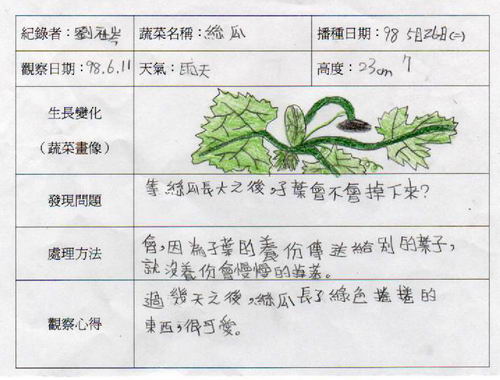 紀錄者：劉 蔬菜名稱：絲瓜 播種日期：98 5月26日(二)
觀察日期：98.6.11 天氣：雨天 高度：23cm
生長變化
（蔬菜畫像）
發現問題 等絲瓜長大之後，子葉會不會掉下來？
處理方法 會，因為子葉的養份傳送給別的葉子，
就沒養份會慢慢的掉落。
觀察心得 過幾天之後，絲瓜長了綠色捲捲的
東西，很可愛。